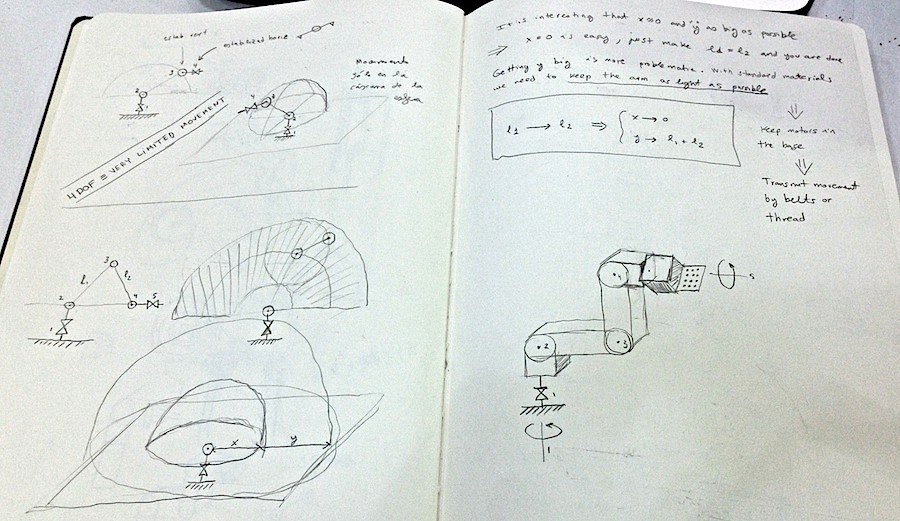 estabilizarse
4
3
2
1
Movimiento
sólo en la
cáscara de la
esfera
4 DOF ≡ VERY LIMITED MOVEMENT
4
2
1
3
l1
l2
2
4
5
1
x
y
It is interesting that x≈0 and y as big as possible
⇒ x=0 is easy, just make l1=l2 and you are done
Getting y big is more problematic. With standard materials
we need to keep the arm as light as possible
l1 → l2 ⇒ { x → 0
y → l1 + l2
⇓
Keep motors in
the base
⇓
Transmit movement
by belts or
thread
4
5
2
3
1
1